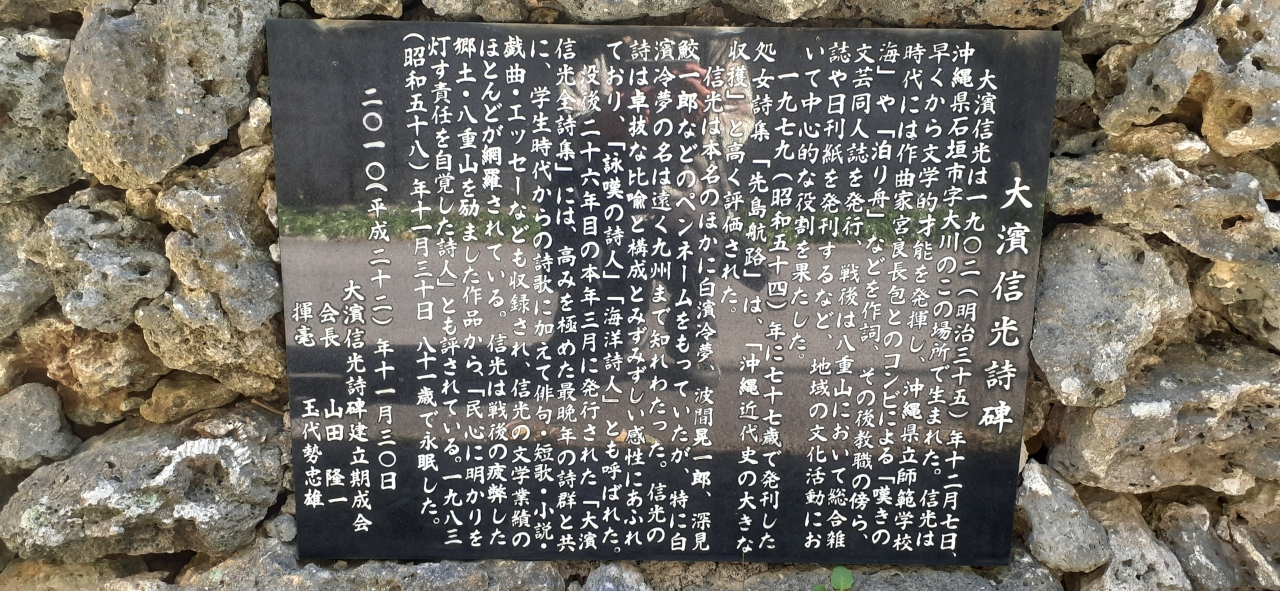 大濱信光詩碑
大濱信光は一九〇二（明治三十五）年十二月七日、
沖縄県石垣市字大川のこの場所で生まれた。信光は
早くから文学的才能を発揮し、沖縄県立師範学校
時代には作曲家宮良長包とのコンビによる「嘆きの
海」や「泊り舟」などを作詞、その後教職の傍ら、
文芸同人誌を発行、戦後は八重山において総合雑
誌や日刊紙を発刊するなど、地域の文化活動にお
いて中心的な役割を果たした。
一九七九（昭和五十四）年に七十七歳で発刊した
処女詩集「先島航路」は、「沖縄近代史の大きな
収獲」と高く評価された。
信光は本名のほかに白濱冷夢、波間晃一郎、深見
鮫一郎などのペンネームをもっていたが、特に白
濱冷夢の名は遠く九州まで知れわたった。信光の
詩は卓抜な比喩と構成とみずみずしい感性にあふれ
ており、「詠嘆の詩人」「海洋詩人」とも呼ばれた。
没後二十六年目の本年三月に発行された「大濱
信光全詩集」には、高みを極めた最晩年の詩群と共
に、学生時代からの詩歌に加えて俳句・短歌・小説・
戯曲・エッセーなども収録され、信光の文学業績の
ほとんどが網羅されている。信光は戦後の疲弊した
郷土・八重山を励ました作品から、「民心に明かりを
灯す責任を自覚した詩人」とも評されている。一九八三
（昭和五十八）年十一月三十日　八十一歳で永眠した。
二〇一〇（平成二十二）年十一月三〇日
大濱信光詩碑建立期成会
会長　山田　隆一
揮毫　玉代勢忠雄